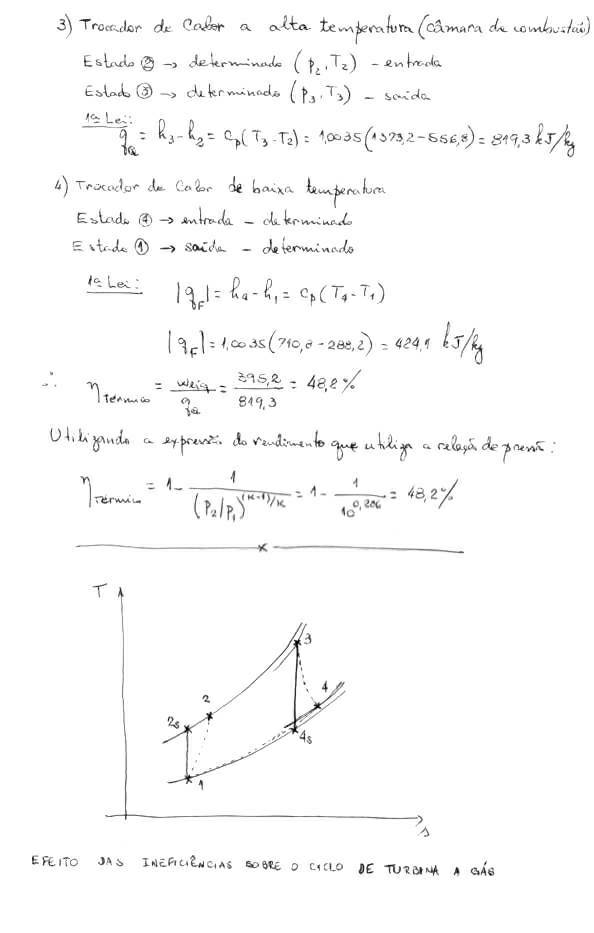 3) Trocador de Calor a alta temperatura (câmara de combustão)
Estado ② → determinado (p₂, T₂) - entrada
Estado ③ → determinado (p₃, T₃) - saída
1ª Lei:
q_Q = h₃ - h₂ = c_p(T₃ - T₂) = 1,0035(1373,2 - 556,8) = 819,3 kJ/kg
4) Trocador de Calor de baixa temperatura
Estado ④ → entrada - determinado
Estado ① → saída - determinado
1ª Lei: |q_F| = h₄ - h₁ = c_p(T₄ - T₁)
|q_F| = 1,0035(710,8 - 288,2) = 424,1 kJ/kg
∴ η_térmico = w_líq/q_Q = 395,2/819,3 = 48,2%
Utilizando a expressão do rendimento que utiliza a relação de pressão:
η_térmico = 1 - 1/(P₂/P₁)^((k-1)/k) = 1 - 1/10^0,286 = 48,2%
T
3
2
4
2s
4s
1
s
EFEITO DAS INEFICIÊNCIAS SOBRE O CICLO DE TURBINA A GÁS